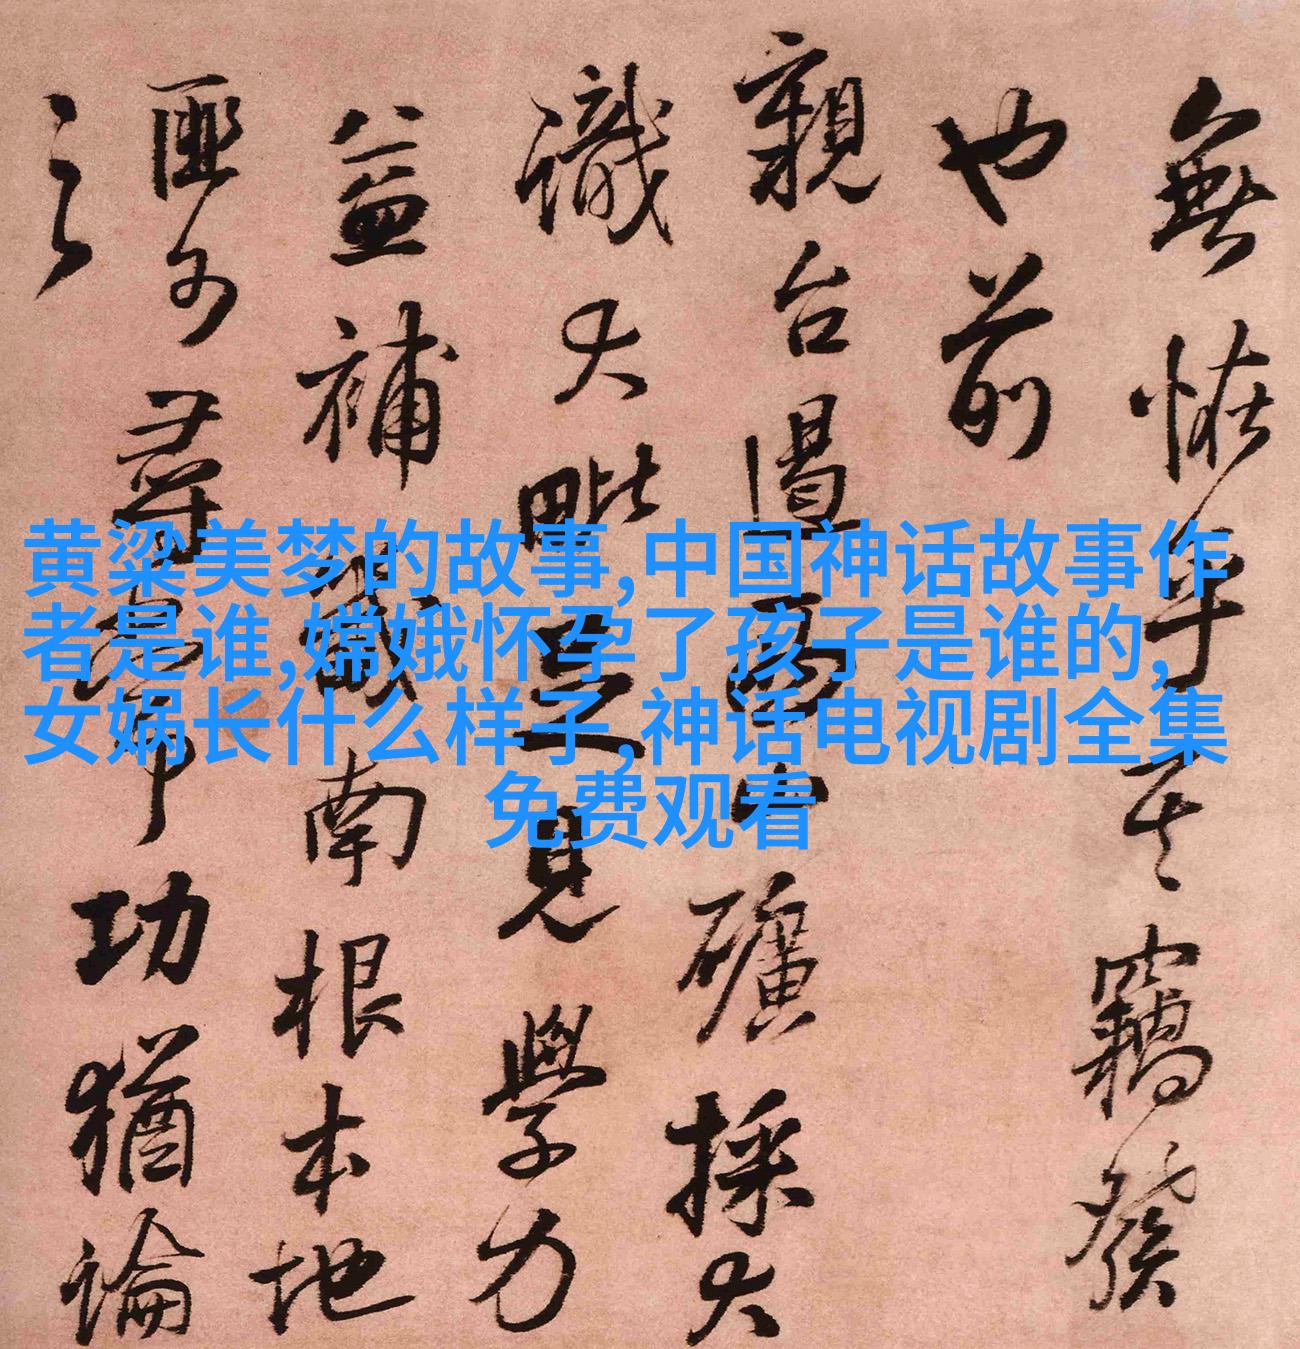 無恠乎其竊發
也前
親台遏
礦採大
識大
見學力
益補
南根本地
匪可尋
功猶論
之
黄粱美梦的故事,中国神话故事作
者是谁,嫦娥怀孕了孩子是谁的,
女娲长什么样子,神话电视剧全集
免费观看